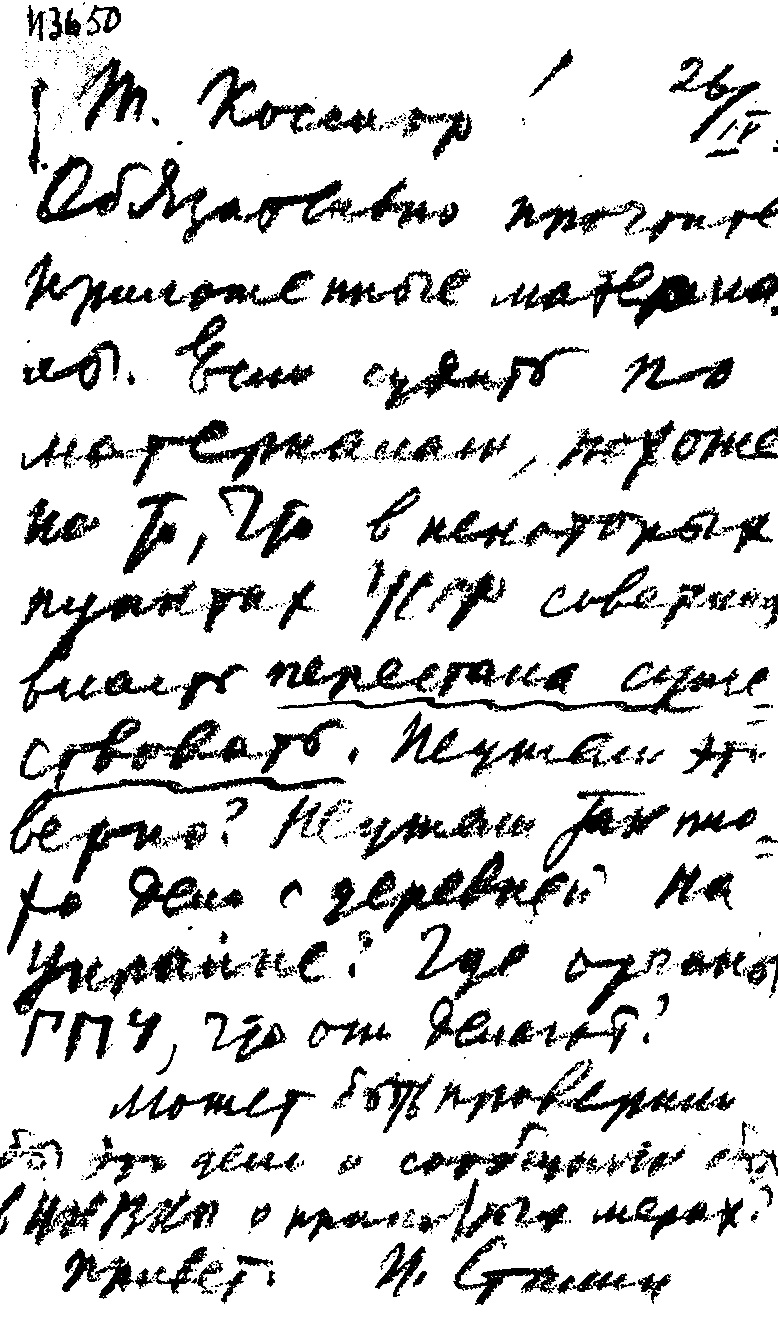 N3650
Т. Косиор! 26/IV.
Обязательно прочтите
приложенные материа
лы. Если судить по
материалам, похоже
на то, что в некоторых
пунктах УССР советская
власть перестала суще=
ствовать. Неужели это
верно? Неужели так пло=
хо дело с деревней на
Украине? Где органы
ГПУ, что они делают?
Может быть проверили
бы это дело и сообщили бы
в ЦК ВКП о принятых мерах?
Привет. И. Сталин